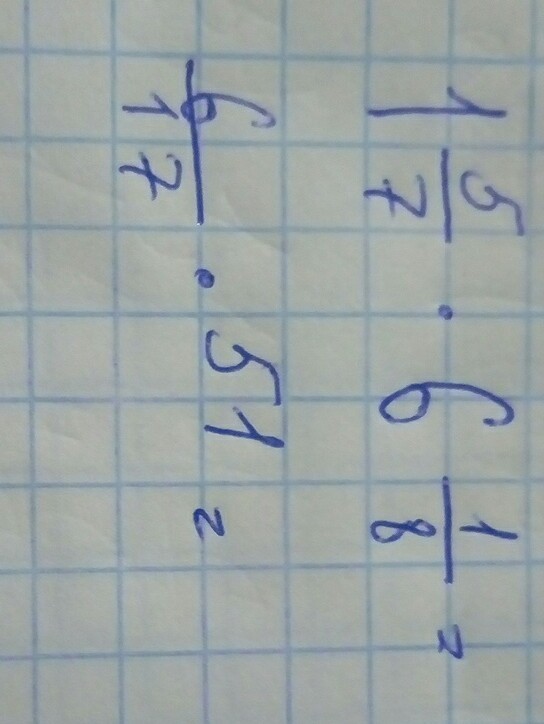 1 5/7 · 6 1/8 =
6/17 · 51 =